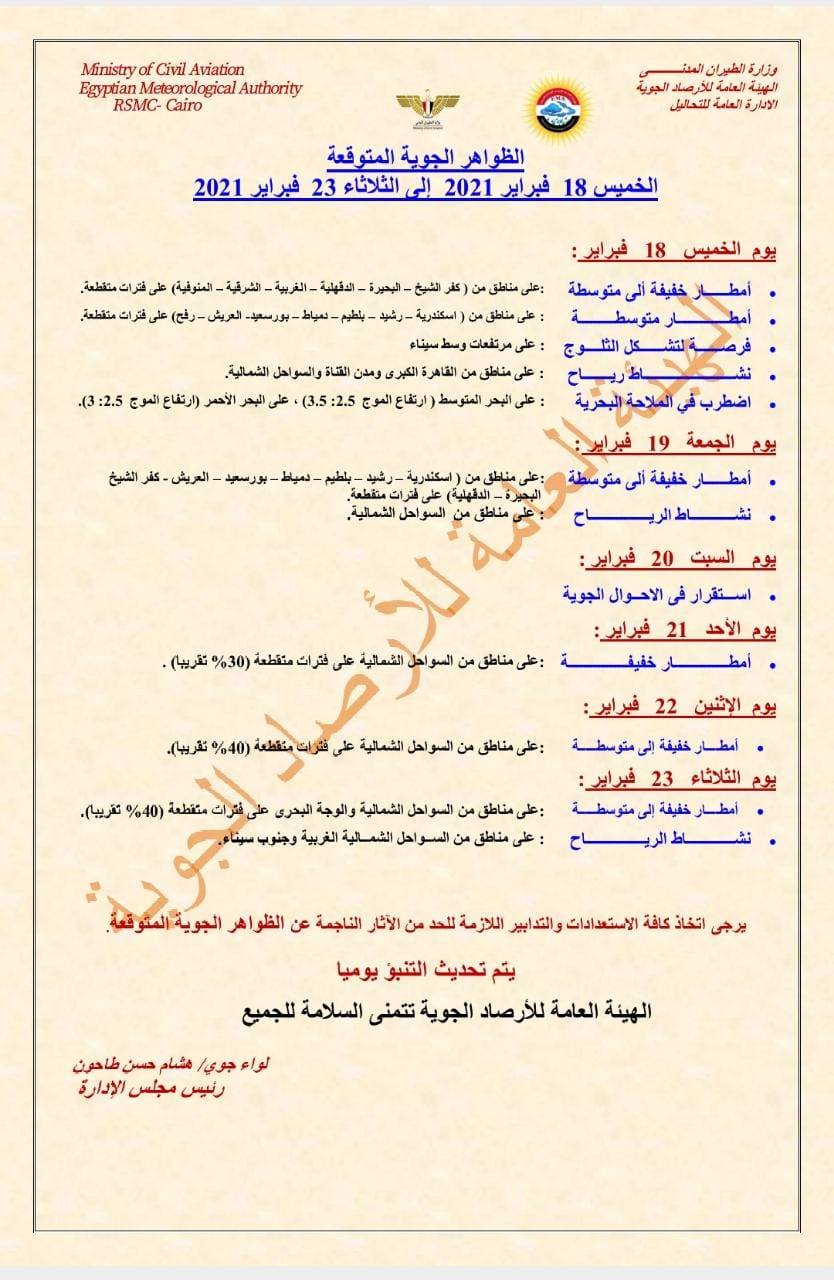 Ministry of Civil Aviation
Egyptian Meteorological Authority
RSMC- Cairo
وزارة الطيران المدنـــــى
الهيئة العامة للأرصاد الجوية
الادارة العامة للتحاليل
الظواهر الجوية المتوقعة
الخميس 18 فبراير 2021 إلى الثلاثاء 23 فبراير 2021
يوم الخميس 18 فبراير :
• أمطـــار خفيفة ألى متوسطة :على مناطق من ( كفر الشيخ – البحيرة – الدقهلية – الغربية – الشرقية – المنوفية) على فترات متقطعة.
• أمطـــــار متوسطـــــــة :على مناطق من ( اسكندرية – رشيد – بلطيم – دمياط – بورسعيد- العريش – رفح) على فترات متقطعة.
• فرصـــة لتشــكل الثلــوج : على مرتفعات وسط سيناء
• نشـــــــاط ريـــــاح : على مناطق من القاهرة الكبرى ومدن القناة والسواحل الشمالية.
• اضطرب في الملاحة البحرية : على البحر المتوسط ( ارتفاع الموج 2.5: 3.5) ، على البحر الأحمر (ارتفاع الموج 2.5: 3).
يوم الجمعة 19 فبراير :
• أمطـــار خفيفة ألى متوسطة :على مناطق من ( اسكندرية – رشيد – بلطيم – دمياط – بورسعيد – العريش - كفر الشيخ
البحيرة – الدقهلية) على فترات متقطعة.
• نشـــــاط الريـــــــاح : على مناطق من السواحل الشمالية.
يوم السبت 20 فبراير :
• اســـتقرار فى الاحــوال الجوية
يوم الأحد 21 فبراير :
• أمطـــــــار خفيفـــــــــة :على مناطق من السواحل الشمالية على فترات متقطعة (30% تقريبا) .
يوم الإثنين 22 فبراير :
• أمطـــار خفيفة إلى متوسطـــة :على مناطق من السواحل الشمالية على فترات متقطعة (40% تقريبا).
يوم الثلاثاء 23 فبراير :
• أمطـــار خفيفة إلى متوسطـــة :على مناطق من السواحل الشمالية والوجة البحرى على فترات متقطعة (40% تقريبا).
• نشـــــاط الريـــــــاح : على مناطق من الســواحل الشمــالية الغربية وجنوب سيناء.
الهيئة العامة للأرصاد الجوية
يرجى اتخاذ كافة الاستعدادات والتدابير اللازمة للحد من الآثار الناجمة عن الظواهر الجوية المتوقعة.
يتم تحديث التنبؤ يوميا
الهيئة العامة للأرصاد الجوية تتمنى السلامة للجميع
لواء جوي/ هشام حسن طاحون
رئيس مجلس الإدارة